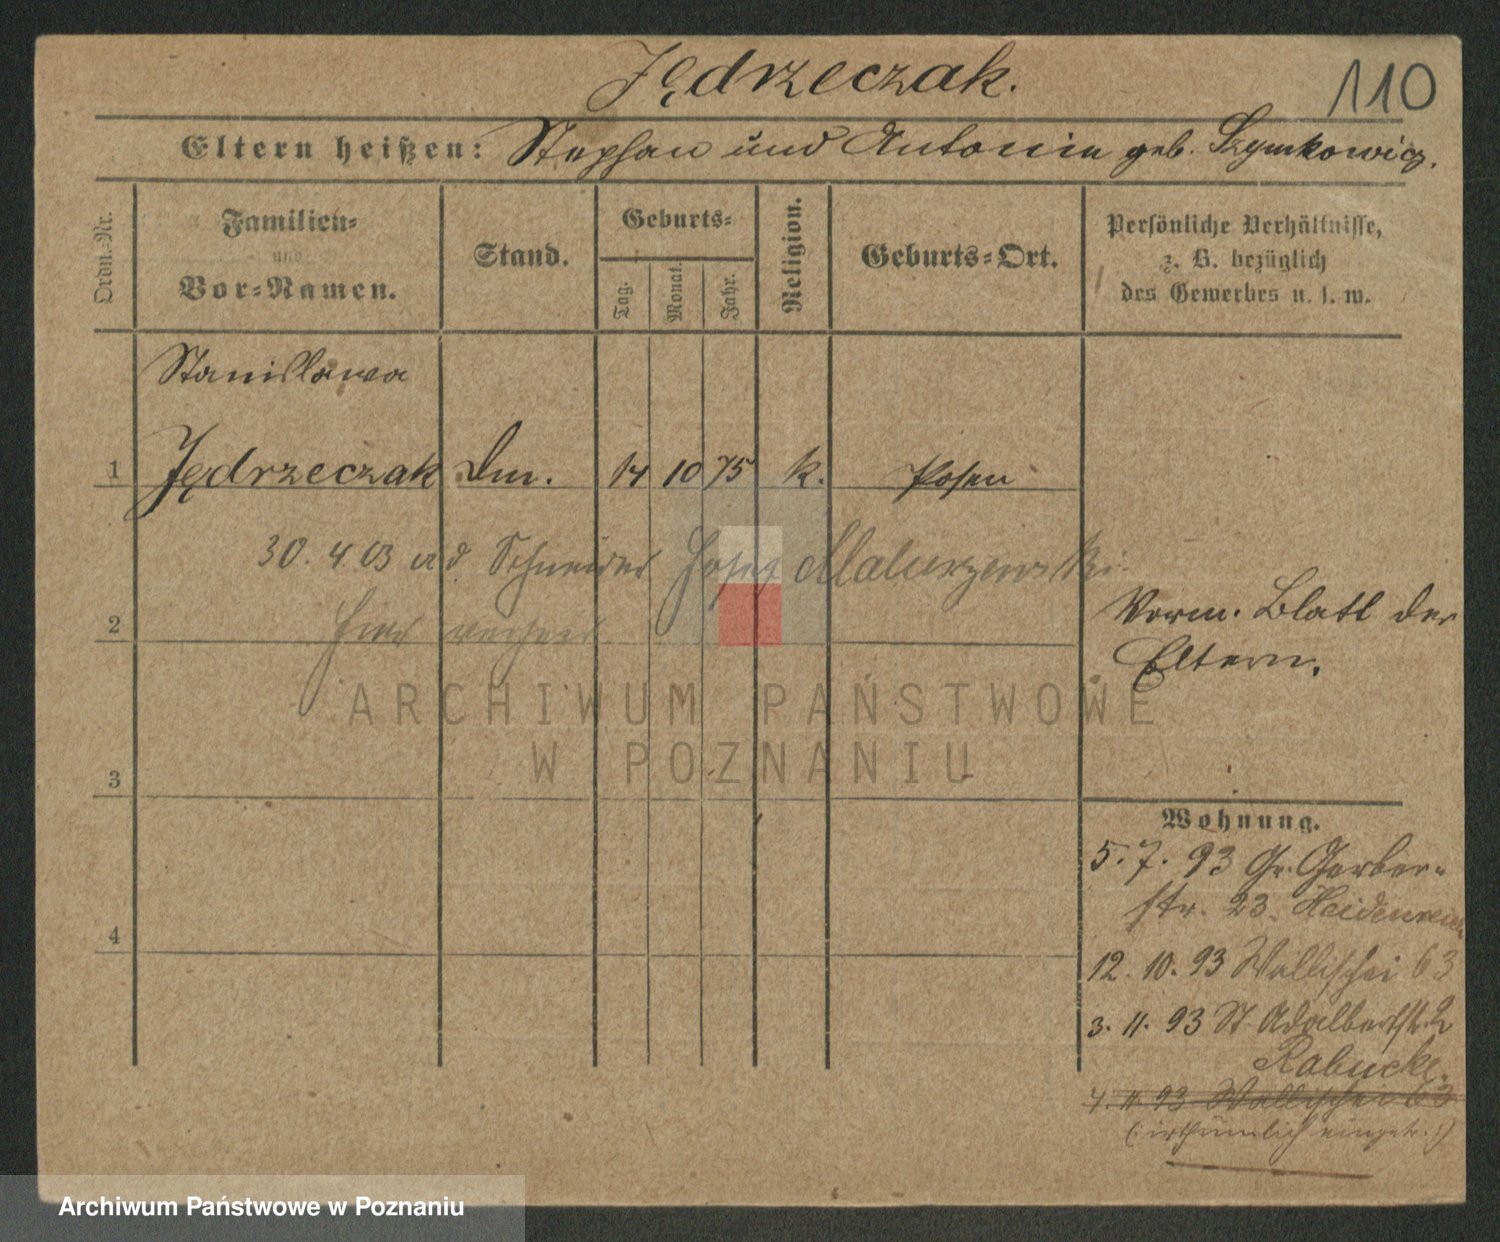 Jędrzeczak.
110
Eltern heißen: Stephan und Antonin geb. Szymkowicz.
Ordn.-Nr.
Familien-
und
Vor-Namen.
Stand.
Geburts-
Tag.
Monat.
Jahr.
Religion.
Geburts-Ort.
Persönliche Verhältnisse,
z. B. bezüglich
des Gewerbes u. s. w.
Stanislawa
1 Jędrzeczak Dm. 14 10 75 k. Posen
30. 4 03 a d Schneider Josef
2 hier verheir.
Vorm. Blatt der
Eltern.
ARCHIWUM PAŃSTWOWE
W POZNANIU
3
Wohnung.
5. 7. 93 Gr. Gerber-
str. 23. Heidenreich
4
12. 10. 93 Wallischei 63
3. 11. 93 St. Adalbertstr. 2
Rabucke.
4. 11. 93 Wallischei 63
(: irthümlich eingetr. :)
Archiwum Państwowe w Poznaniu